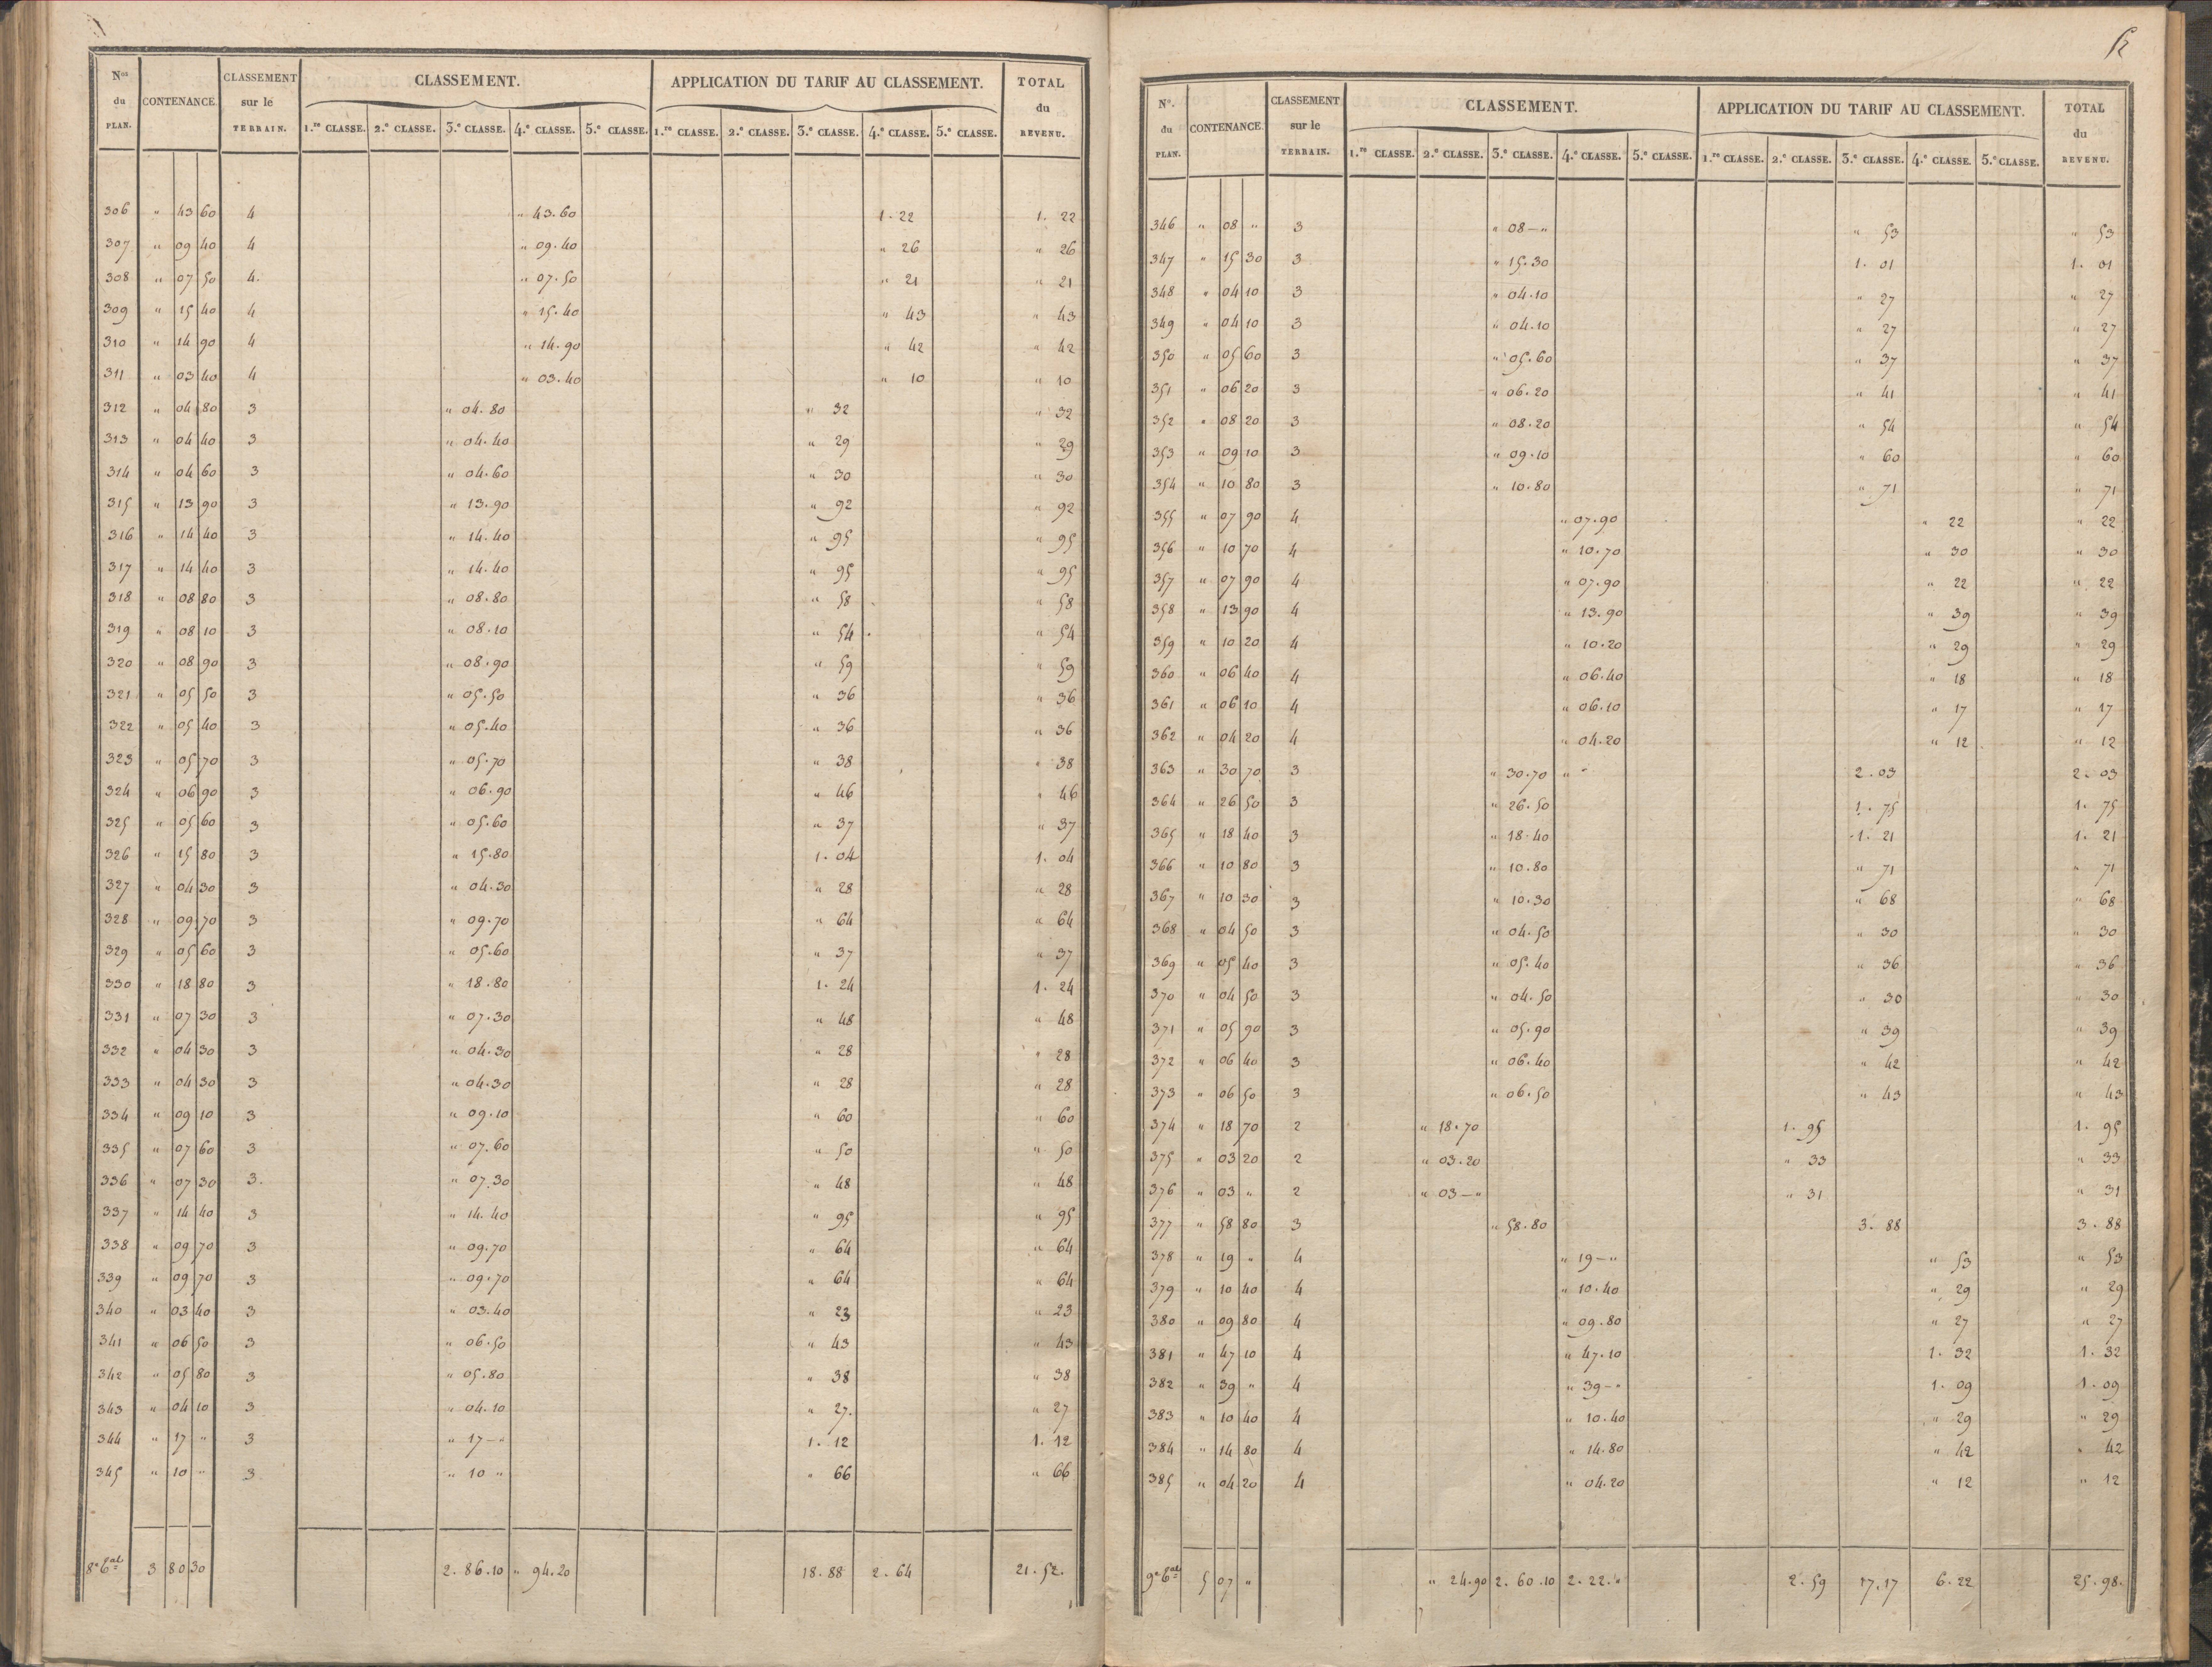 Nos du PLAN. CONTENANCE. CLASSEMENT sur le TERRAIN. CLASSEMENT. APPLICATION DU TARIF AU CLASSEMENT. TOTAL du REVENU.
1.re CLASSE. 2.e CLASSE. 3.e CLASSE. 4.e CLASSE. 5.e CLASSE. 1.re CLASSE. 2.e CLASSE. 3.e CLASSE. 4.e CLASSE. 5.e CLASSE.
306 " 43 60 4 " 43.60 1.22 1.22
307 " 09 40 4 " 09.40 " 26 " 26
308 " 07 50 4. " 07.50 " 21 " 21
309 " 15 40 4 " 15.40 " 43 " 43
310 " 14 90 4 " 14.90 " 42 " 42
311 " 03 40 4 " 03.40 " 10 " 10
312 " 04 80 3 " 04.80 " 32 " 32
313 " 04 40 3 " 04.40 " 29 " 29
314 " 04 60 3 " 04.60 " 30 " 30
315 " 13 90 3 " 13.90 " 92 " 92
316 " 14 40 3 " 14.40 " 95 " 95
317 " 14 40 3 " 14.40 " 95 " 95
318 " 08 80 3 " 08.80 " 58 " 58
319 " 08 10 3 " 08.10 " 54 " 54
320 " 08 90 3 " 08.90 " 59 " 59
321 " 05 50 3 " 05.50 " 36 " 36
322 " 05 40 3 " 05.40 " 36 " 36
323 " 05 70 3 " 05.70 " 38 " 38
324 " 06 90 3 " 06.90 " 46 " 46
325 " 05 60 3 " 05.60 " 37 " 37
326 " 15 80 3 " 15.80 1.04 1.04
327 " 04 30 3 " 04.30 " 28 " 28
328 " 09 70 3 " 09.70 " 64 " 64
329 " 05 60 3 " 05.60 " 37 " 37
330 " 18 80 3 " 18.80 1.24 1.24
331 " 07 30 3 " 07.30 " 48 " 48
332 " 04 30 3 " 04.30 " 28 " 28
333 " 04 30 3 " 04.30 " 28 " 28
334 " 09 10 3 " 09.10 " 60 " 60
335 " 07 60 3 " 07.60 " 50 " 50
336 " 07 30 3. " 07.30 " 48 " 48
337 " 14 40 3 " 14.40 " 95 " 95
338 " 09 70 3 " 09.70 " 64 " 64
339 " 09 70 3 " 09.70 " 64 " 64
340 " 03 40 3 " 03.40 " 23 " 23
341 " 06 50 3 " 06.50 " 43 " 43
342 " 05 80 3 " 05.80 " 38 " 38
343 " 04 10 3 " 04.10 " 27. " 27
344 " 17 " 3 " 17-" 1.12 1.12
345 " 10 " 3 " 10 " " 66 " 66
8e 6al 3 80 30 2.86.10 " 94.20 18.88 2.64 21.52.
52
No. du PLAN. CONTENANCE. CLASSEMENT sur le TERRAIN. CLASSEMENT. APPLICATION DU TARIF AU CLASSEMENT. TOTAL du REVENU.
1.re CLASSE. 2.e CLASSE. 3.e CLASSE. 4.e CLASSE. 5.e CLASSE. 1.re CLASSE. 2.e CLASSE. 3.e CLASSE. 4.e CLASSE. 5.e CLASSE.
346 " 08 " 3 " 08-" " 53 " 53
347 " 15 30 3 " 15.30 1.01 1.01
348 " 04 10 3 " 04.10 " 27 " 27
349 " 04 10 3 " 04.10 " 27 " 27
350 " 05 60 3 " 05.60 " 37 " 37
351 " 06 20 3 " 06.20 " 41 " 41
352 " 08 20 3 " 08.20 " 54 " 54
353 " 09 10 3 " 09.10 " 60 " 60
354 " 10 80 3 " 10.80 " 71 " 71
355 " 07 90 4 " 07.90 " 22 " 22
356 " 10 70 4 " 10.70 " 30 " 30
357 " 07 90 4 " 07.90 " 22 " 22
358 " 13 90 4 " 13.90 " 39 " 39
359 " 10 20 4 " 10.20 " 29 " 29
360 " 06 40 4 " 06.40 " 18 " 18
361 " 06 10 4 " 06.10 " 17 " 17
362 " 04 20 4 " 04.20 " 12 " 12
363 " 30 70 3 " 30.70 " " 2.03 2.03
364 " 26 50 3 " 26.50 1.75 1.75
365 " 18 40 3 " 18.40 1.21 1.21
366 " 10 80 3 " 10.80 " 71 " 71
367 " 10 30 3 " 10.30 " 68 " 68
368 " 04 50 3 " 04.50 " 30 " 30
369 " 05 40 3 " 05.40 " 36 " 36
370 " 04 50 3 " 04.50 " 30 " 30
371 " 05 90 3 " 05.90 " 39 " 39
372 " 06 40 3 " 06.40 " 42 " 42
373 " 06 50 3 " 06.50 " 43 " 43
374 " 18 70 2 " 18.70 1.95 1.95
375 " 03 20 2 " 03.20 " 33 " 33
376 " 03 " 2 " 03-" " 31 " 31
377 " 58 80 3 " 58.80 3.88 3.88
378 " 19 " 4 " 19-" " 53 " 53
379 " 10 40 4 " 10.40 " 29 " 29
380 " 09 80 4 " 09.80 " 27 " 27
381 " 47 10 4 " 47.10 1.32 1.32
382 " 39 " 4 " 39-" 1.09 1.09
383 " 10 40 4 " 10.40 " 29 " 29
384 " 14 80 4 " 14.80 " 42 " 42
385 " 04 20 4 " 04.20 " 12 " 12
9e 6al 5 07 " " 24.90 2.60.10 2.22." 2.59 17.17 6.22 25.98.